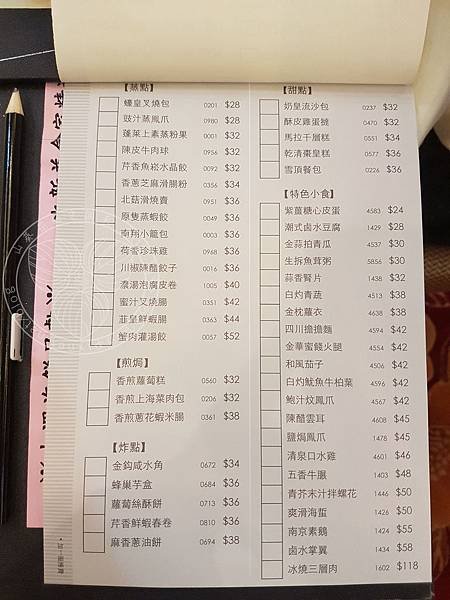 【蒸點】
蠔皇叉燒包 0201 $28
豉汁蒸鳳爪 0980 $28
蓬萊上素蒸粉果 0001 $32
陳皮牛肉球 0956 $32
芹香魚崧水晶餃 0092 $32
香蔥芝麻滑腸粉 0356 $34
北菇滑燒賣 0951 $36
原隻蒸蝦餃 0049 $36
南翔小籠包 0003 $36
荷香珍珠雞 0968 $36
川椒陳醋餃子 0016 $36
濃湯泡腐皮卷 1005 $40
蜜汁叉燒腸 0351 $42
韮皇鮮蝦腸 0363 $44
蟹肉灌湯餃 0057 $52
【煎焗】
香煎蘿蔔糕 0560 $32
香煎上海菜肉包 0206 $32
香煎蔥花蝦米腸 0361 $38
【炸點】
金鈎咸水角 0672 $34
蜂巢芋盒 0684 $36
蘿蔔絲酥餅 0713 $36
芹香鮮蝦春卷 0810 $36
麻香蔥油餅 0694 $38
【甜點】
奶皇流沙包 0237 $32
酥皮雞蛋撻 0470 $32
馬拉千層糕 0551 $34
乾清棗皇糕 0577 $36
雪頂餐包 0226 $36
【特色小食】
紫薑糖心皮蛋 4583 $24
潮式鹵水豆腐 1429 $28
金蒜拍青瓜 4537 $30
生拆魚茸粥 5856 $30
蒜香腎片 1438 $32
白灼青蔬 4513 $38
金枕蘿衣 4638 $38
四川擔擔麵 4594 $42
金華蜜餞火腿 4554 $42
和風茄子 4506 $42
白灼魷魚牛柏葉 4596 $42
鮑汁炆鳳爪 4567 $42
陳醋雲耳 4608 $45
鹽焗鳳爪 1478 $45
清泉口水雞 4601 $46
五香牛腱 1403 $48
青芥末汁拌螺花 1446 $50
爽滑海蜇 1426 $50
南京素鵝 1424 $55
鹵水掌翼 1434 $58
冰燒三層肉 1602 $118